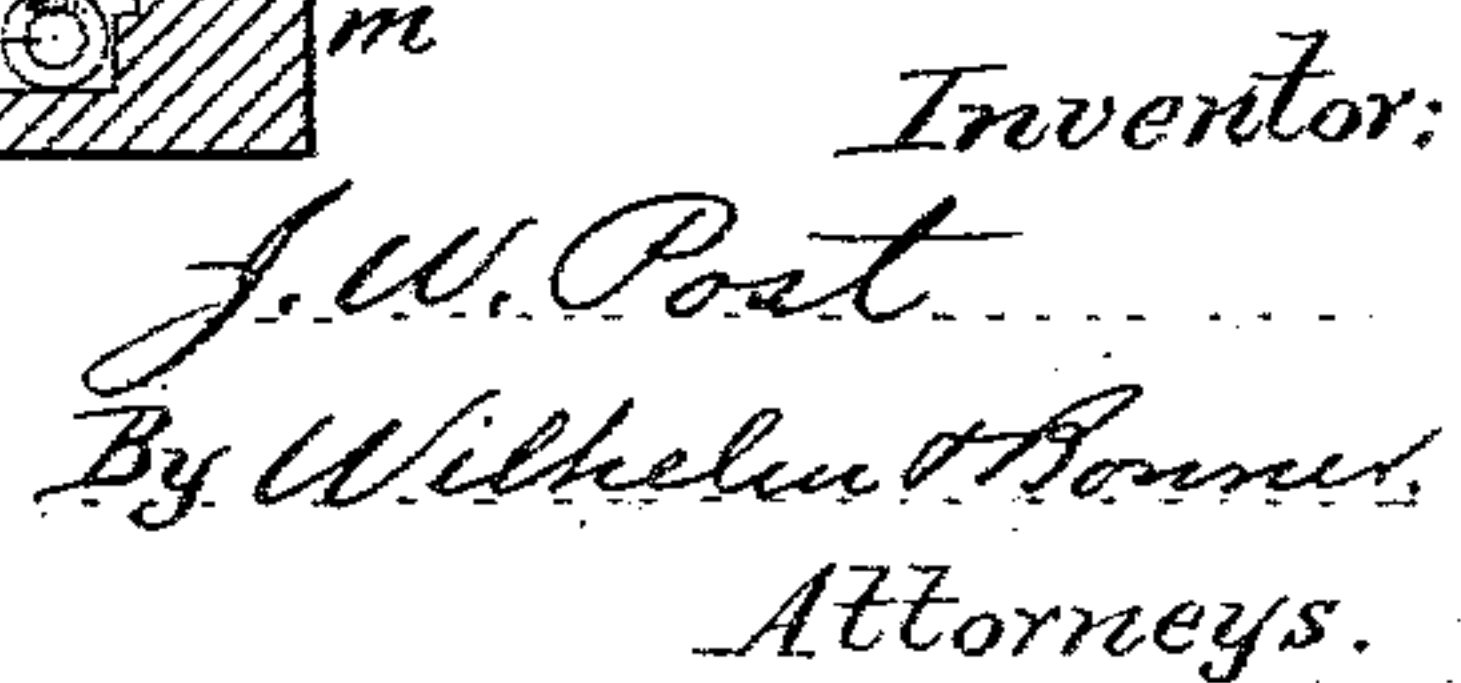 m
Inventor:
J. W. Post
By Wilhelm & Bonner.
Attorneys.